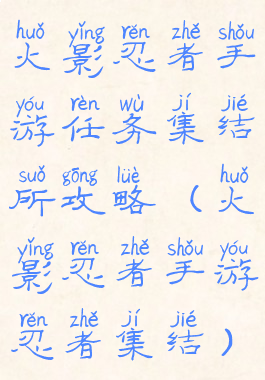 huǒ yǐng rěn zhě shǒu
火影忍者手
yóu rèn wù jí jié
游任务集结
suǒ gōng lüè huǒ
所攻略（火
yǐng rěn zhě shǒu yóu
影忍者手游
rěn zhě jí jié
忍者集结）